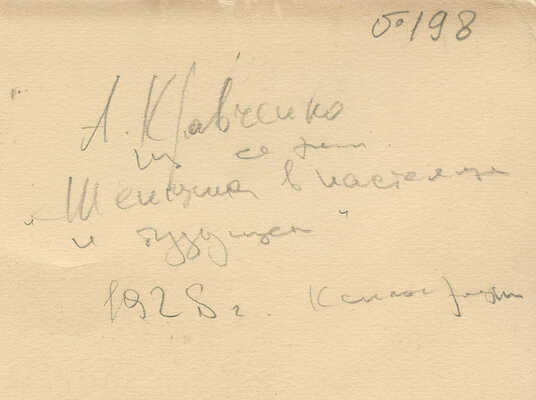 б. 198
А. Кравченко
"Женщина в настоящем
и будущем"
1928 г. Ксилография